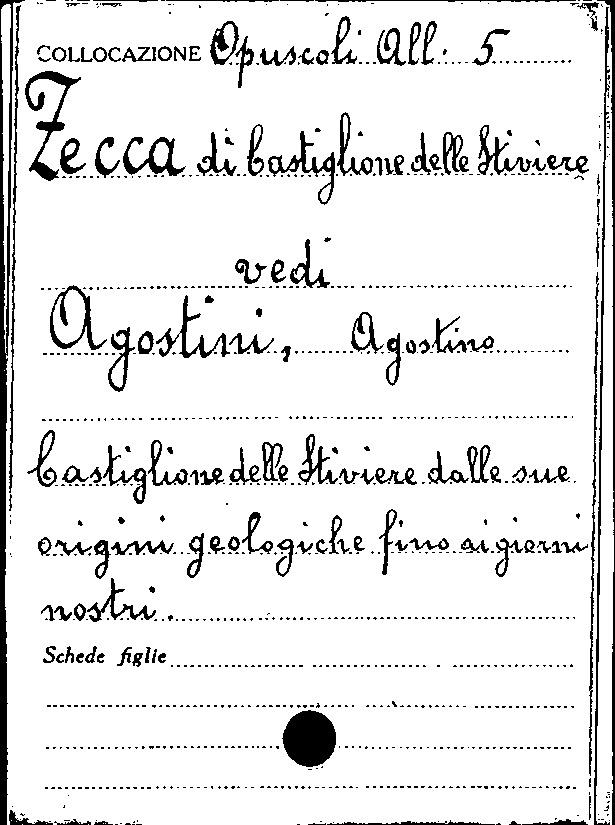 COLLOCAZIONE Opuscoli All. 5
Zecca di Castiglione delle Stiviere
vedi
Agostini, Agostino
Castiglione delle Stiviere dalle sue
origini geologiche fino ai giorni
nostri.
Schede figlie